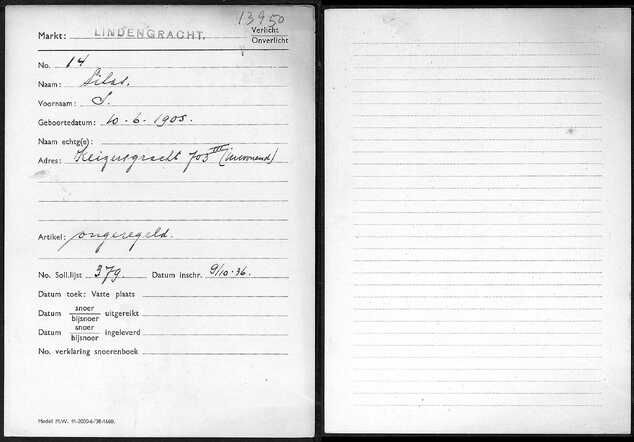 13950
Markt: LINDENGRACHT. Verlicht
Onverlicht
No. 14
Naam: Silas.
Voornaam: S.
Geboortedatum: 10-6-1905.
Naam echtg(e):
Adres: Keizersgracht 703 III (inwonend)
Artikel: ongeregeld.
No. Soll.lijst 379. Datum inschr. 9/10-36.
Datum toek: Vaste plaats
Datum snoer
bijsnoer uitgereikt
Datum snoer
bijsnoer ingeleverd
No. verklaring snoerenboek
Model M.W. 11-2000-6/'38-1680.